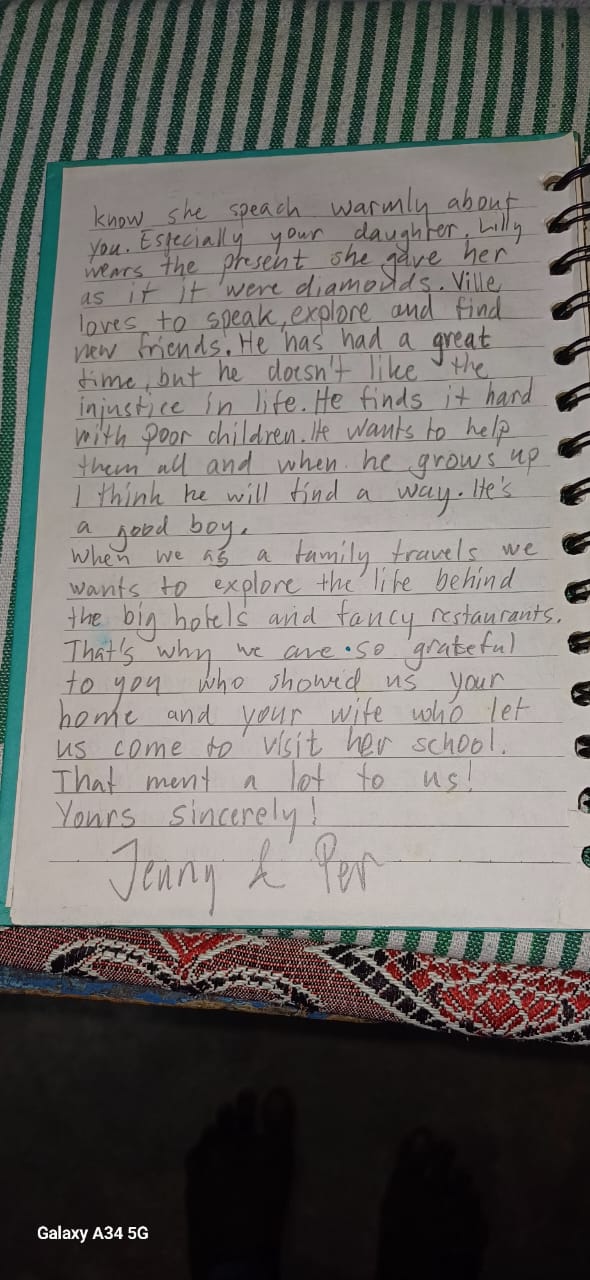 know she speach warmly about
you. Especially your daughter. Lilly
wears the present she gave her
as it it were diamonds. Ville
loves to speak, explore and find
new friends. He has had a great
time, but he doesn't like the
injustice in life. He finds it hard
with poor children. He wants to help
them all and when he grows up
I think he will find a way. He's
a good boy.
When we as a family travels we
wants to explore the life behind
the big hotels and fancy restaurants.
That's why we are so grateful
to you who showed us your
home and your wife who let
us come to visit her school.
That ment a lot to us!
Yours sincerely!
Jenny & Per
Galaxy A34 5G